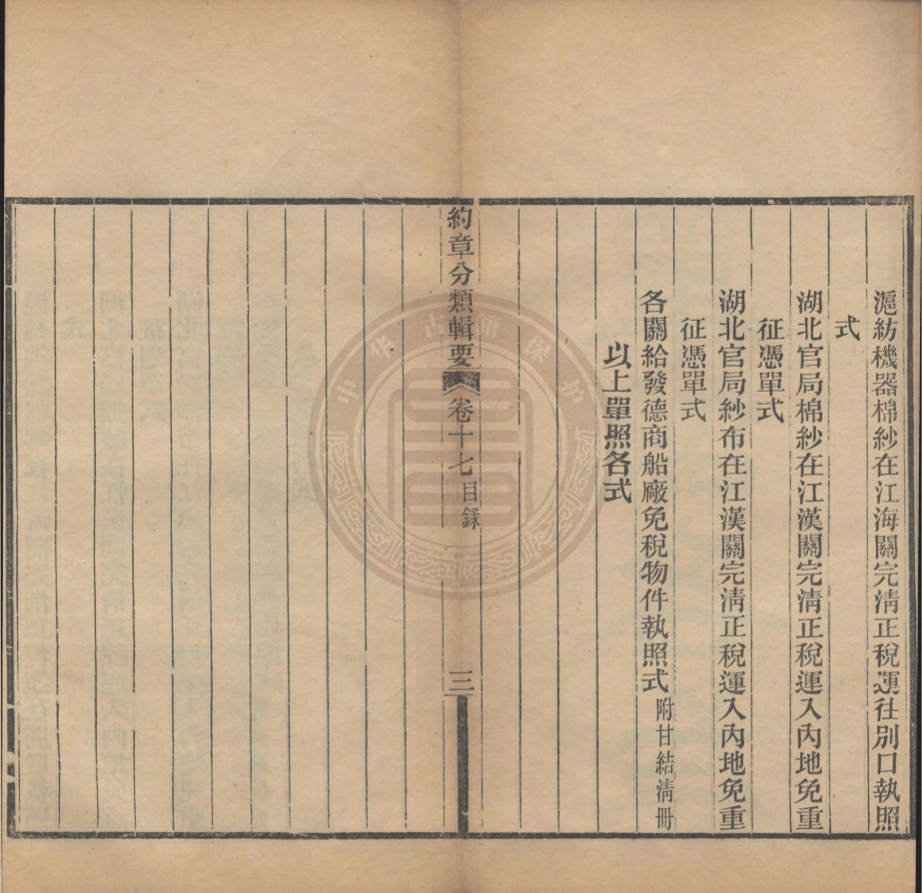 滬紡機器棉紗在江海關完清正稅運往別口執照
式
湖北官局棉紗在江漢關完清正稅運入內地免重
征憑單式
湖北官局紗布在江漢關完清正稅運入內地免重
征憑單式
各關給發德商船廠免稅物件執照式附甘結清冊
以上單照各式
約章分類輯要 卷十七目錄 三
中华古籍保护